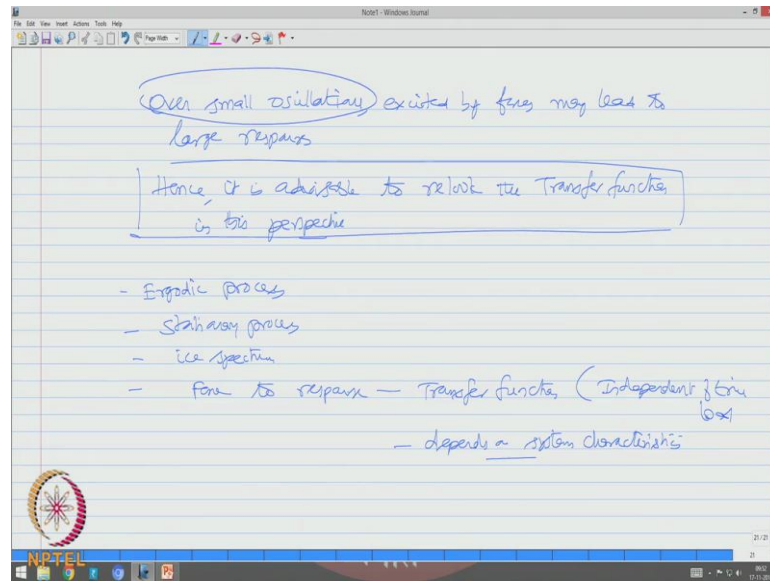 Note1 - Windows Journal
File Edit View Insert Actions Tools Help
Page Width
Over small oscillations excited by forces may lead to
large response
Hence, it is advisable to relook the Transfer function
in this perspective
- Ergodic process
- Stationary process
- ice spectrum
- Force to response - Transfer function (Independent of time
- depends on system characteristics
21/21
21
NPTEL
09:52
17-11-20